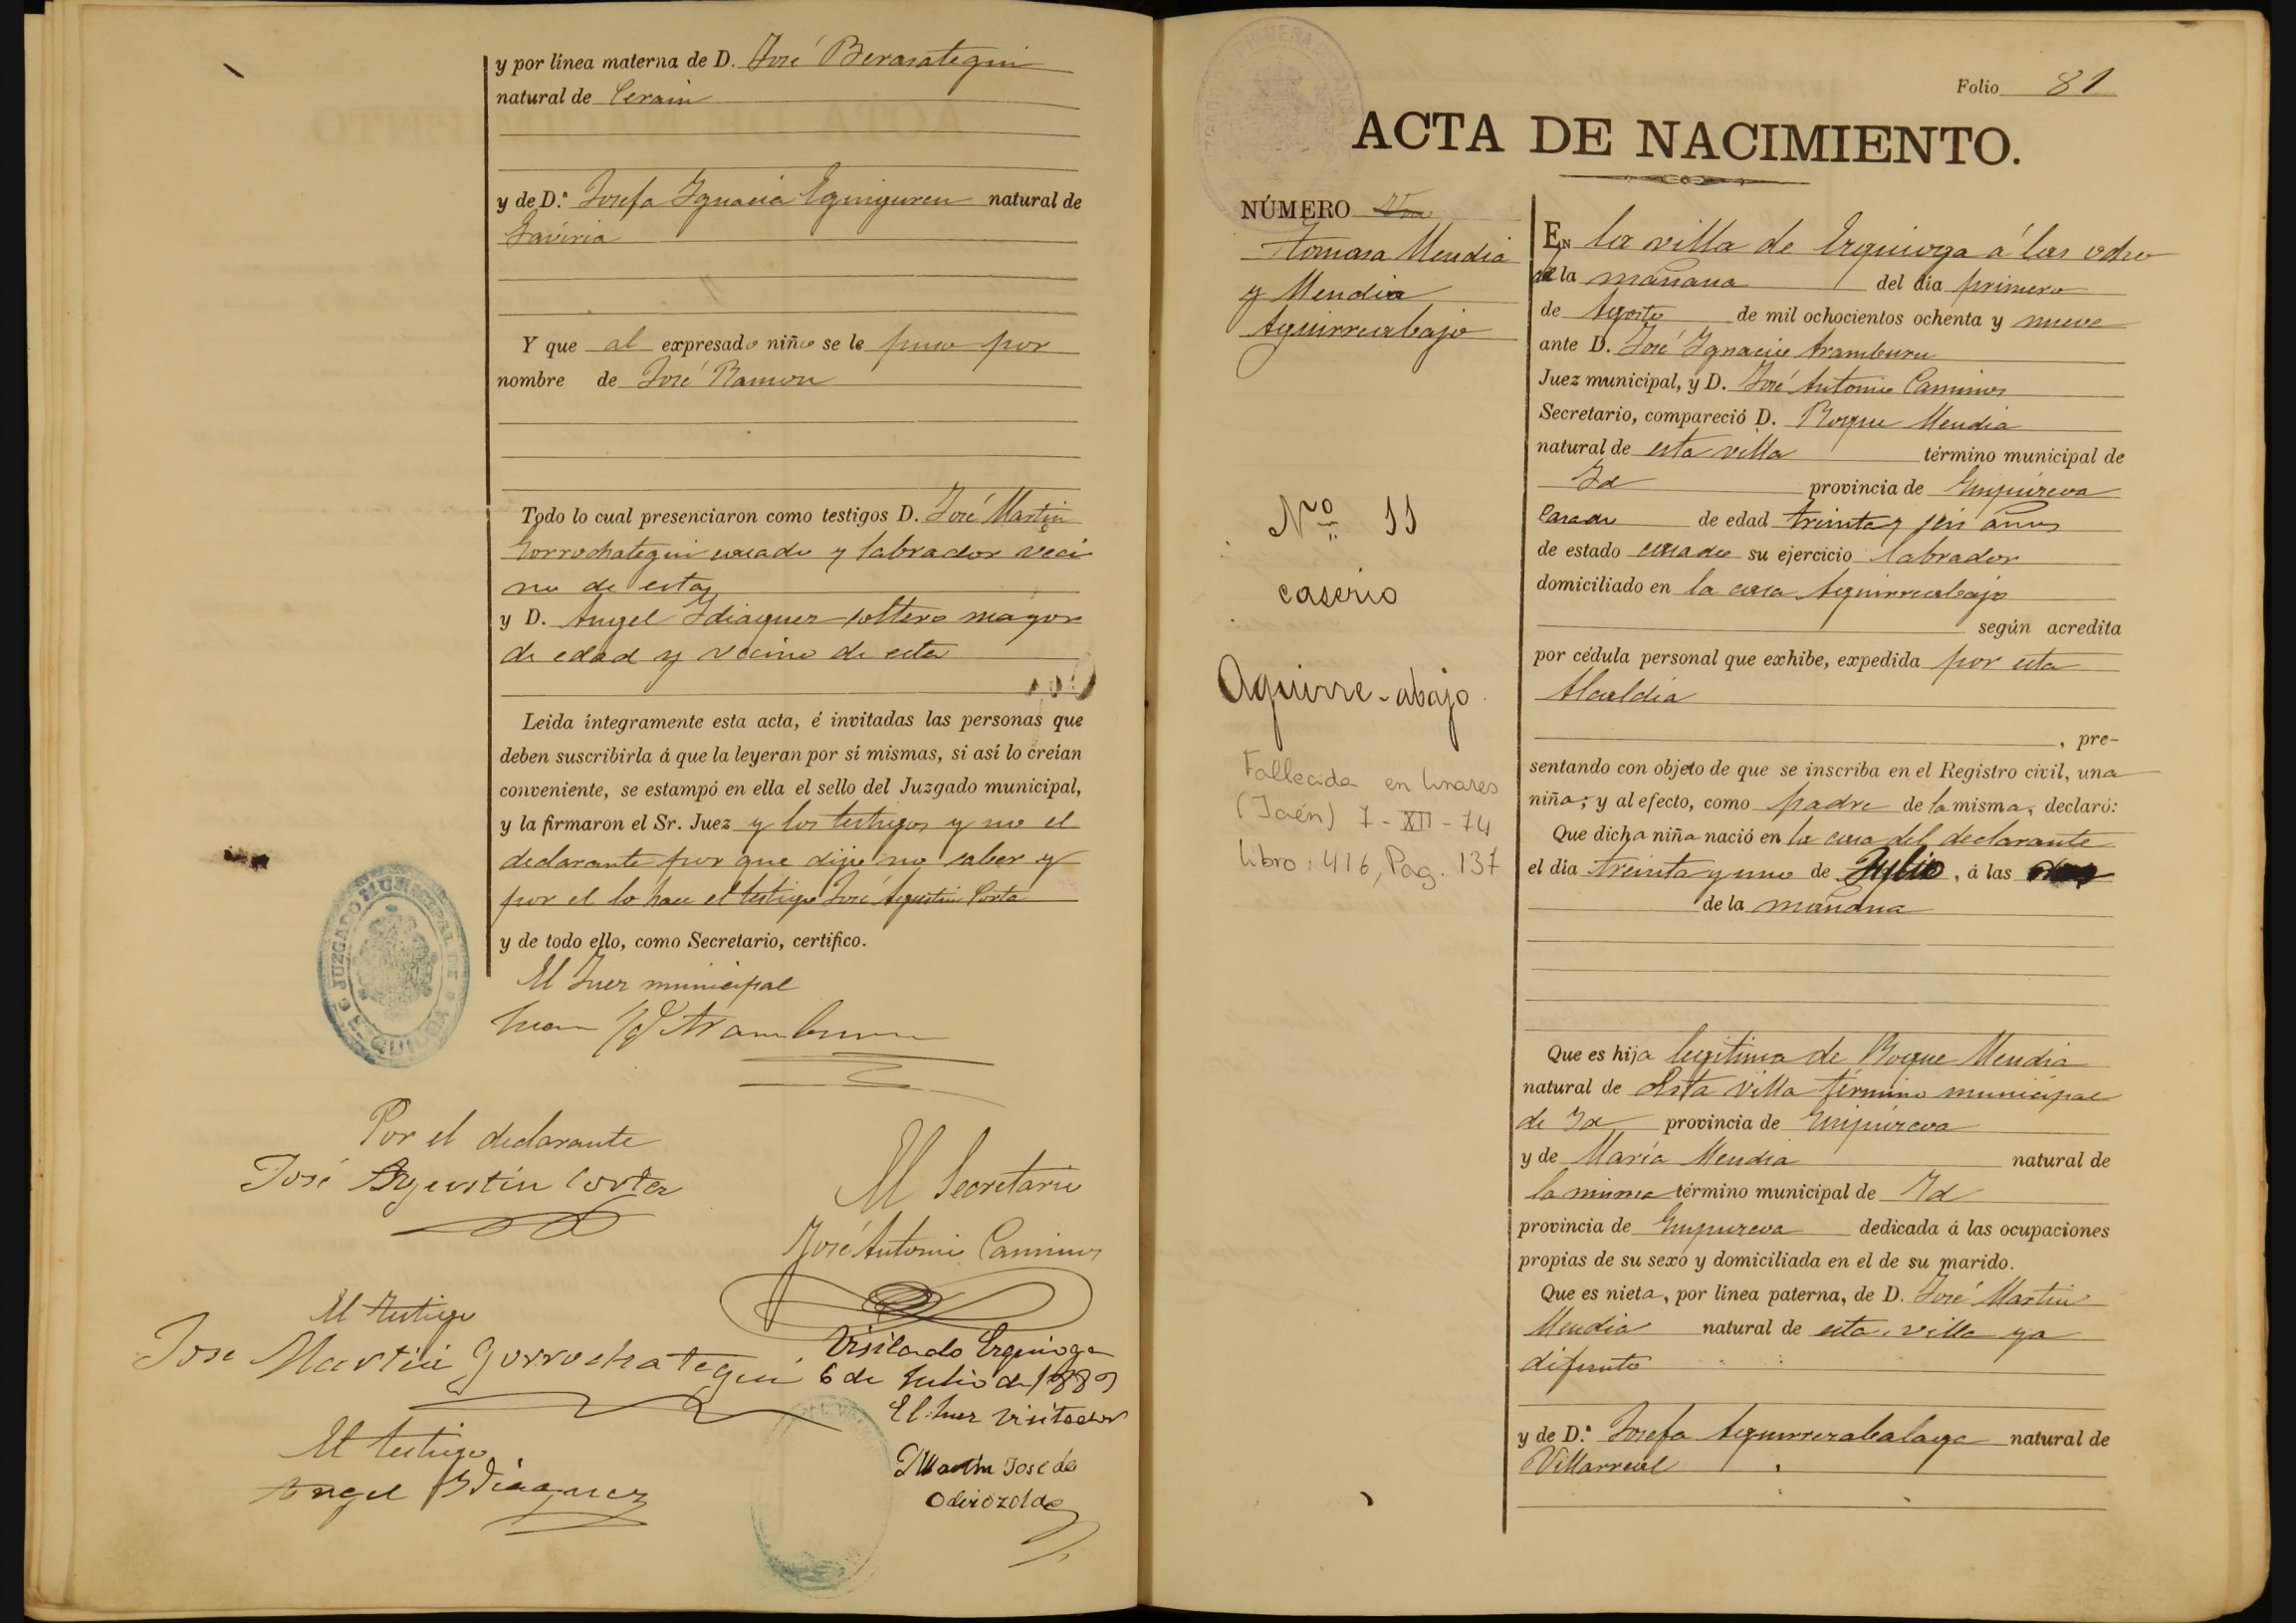 y por línea materna de D. José Berasategui
natural de Cerain
y de D.ª Josefa Ygnacia Eguiguren natural de
Gaviria
Y que al expresado niño se le puso por
nombre de José Ramon
Todo lo cual presenciaron como testigos D. José Martin
Gorrochategui casado y labrador veci
no de esta
y D. Angel Ydiaquez soltero mayor
de edad y vecino de esta
Leida íntegramente esta acta, é invitadas las personas que
deben suscribirla á que la leyeran por sí mismas, si así lo creían
conveniente, se estampó en ella el sello del Juzgado municipal,
y la firmaron el Sr. Juez y los testigos y no el
declarante por que dijo no saber y
por el lo hace el testigo José Agustin Corta
y de todo ello, como Secretario, certifico.
JUZGADO MUNICIPAL DE EZQUIOGA
El Juez municipal
Juan Yg.º Aramburu
Por el declarante
José Agustin Corta
El Secretario
José Antonio Caminos
El testigo
Jose Martin Gorrochategui
Visitado Ezquioga
6 de Julio de 1889
El Juez visitador
El testigo
Angel Ydiaquez
Martin Jose de
Odriozola
Folio 81
ACTA DE NACIMIENTO.
NÚMERO
Tomasa Mendia
y Mendia
Aguirreabajo
Nº 11
caserio
Aguirre-abajo
Fallecida en Linares
(Jaén) 7-XII-74
libro: 416, Pag. 137
En la villa de Ezquioga á las ocho
de la mañana del dia primero
de Agosto de mil ochocientos ochenta y nueve
ante D. José Ygnacio Aramburu
Juez municipal, y D. José Antonio Caminos
Secretario, compareció D. Roque Mendia
natural de esta villa término municipal de
Id provincia de Guipúzcoa
casado de edad treinta y seis años
de estado casado su ejercicio labrador
domiciliado en la casa Aguirreabajo
según acredita
por cédula personal que exhibe, expedida por esta
Alcaldia
, pre-
sentando con objeto de que se inscriba en el Registro civil, una
niña; y al efecto, como padre de la misma, declaró:
Que dicha niña nació en la casa del declarante
el dia treinta y uno de Julio, á las
de la mañana
Que es hija legitima de Roque Mendia
natural de esta villa término municipal
de Id provincia de Guipúzcoa
y de María Mendia natural de
la misma término municipal de Id
provincia de Guipuzcoa dedicada á las ocupaciones
propias de su sexo y domiciliada en el de su marido.
Que es nieta, por línea paterna, de D. José Martin
Mendia natural de esta villa ya
difunto
y de D.ª Josefa Aguirrezabalaga natural de
Villarreal